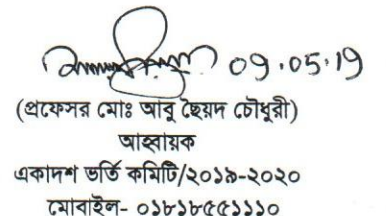 09.05.19
(প্রফেসর মোঃ আবু ছৈয়দ চৌধুরী)
আহ্বায়ক
একাদশ ভর্তি কমিটি/২০১৯-২০২০
মোবাইল- ০১৮১৮৫৫১১১০